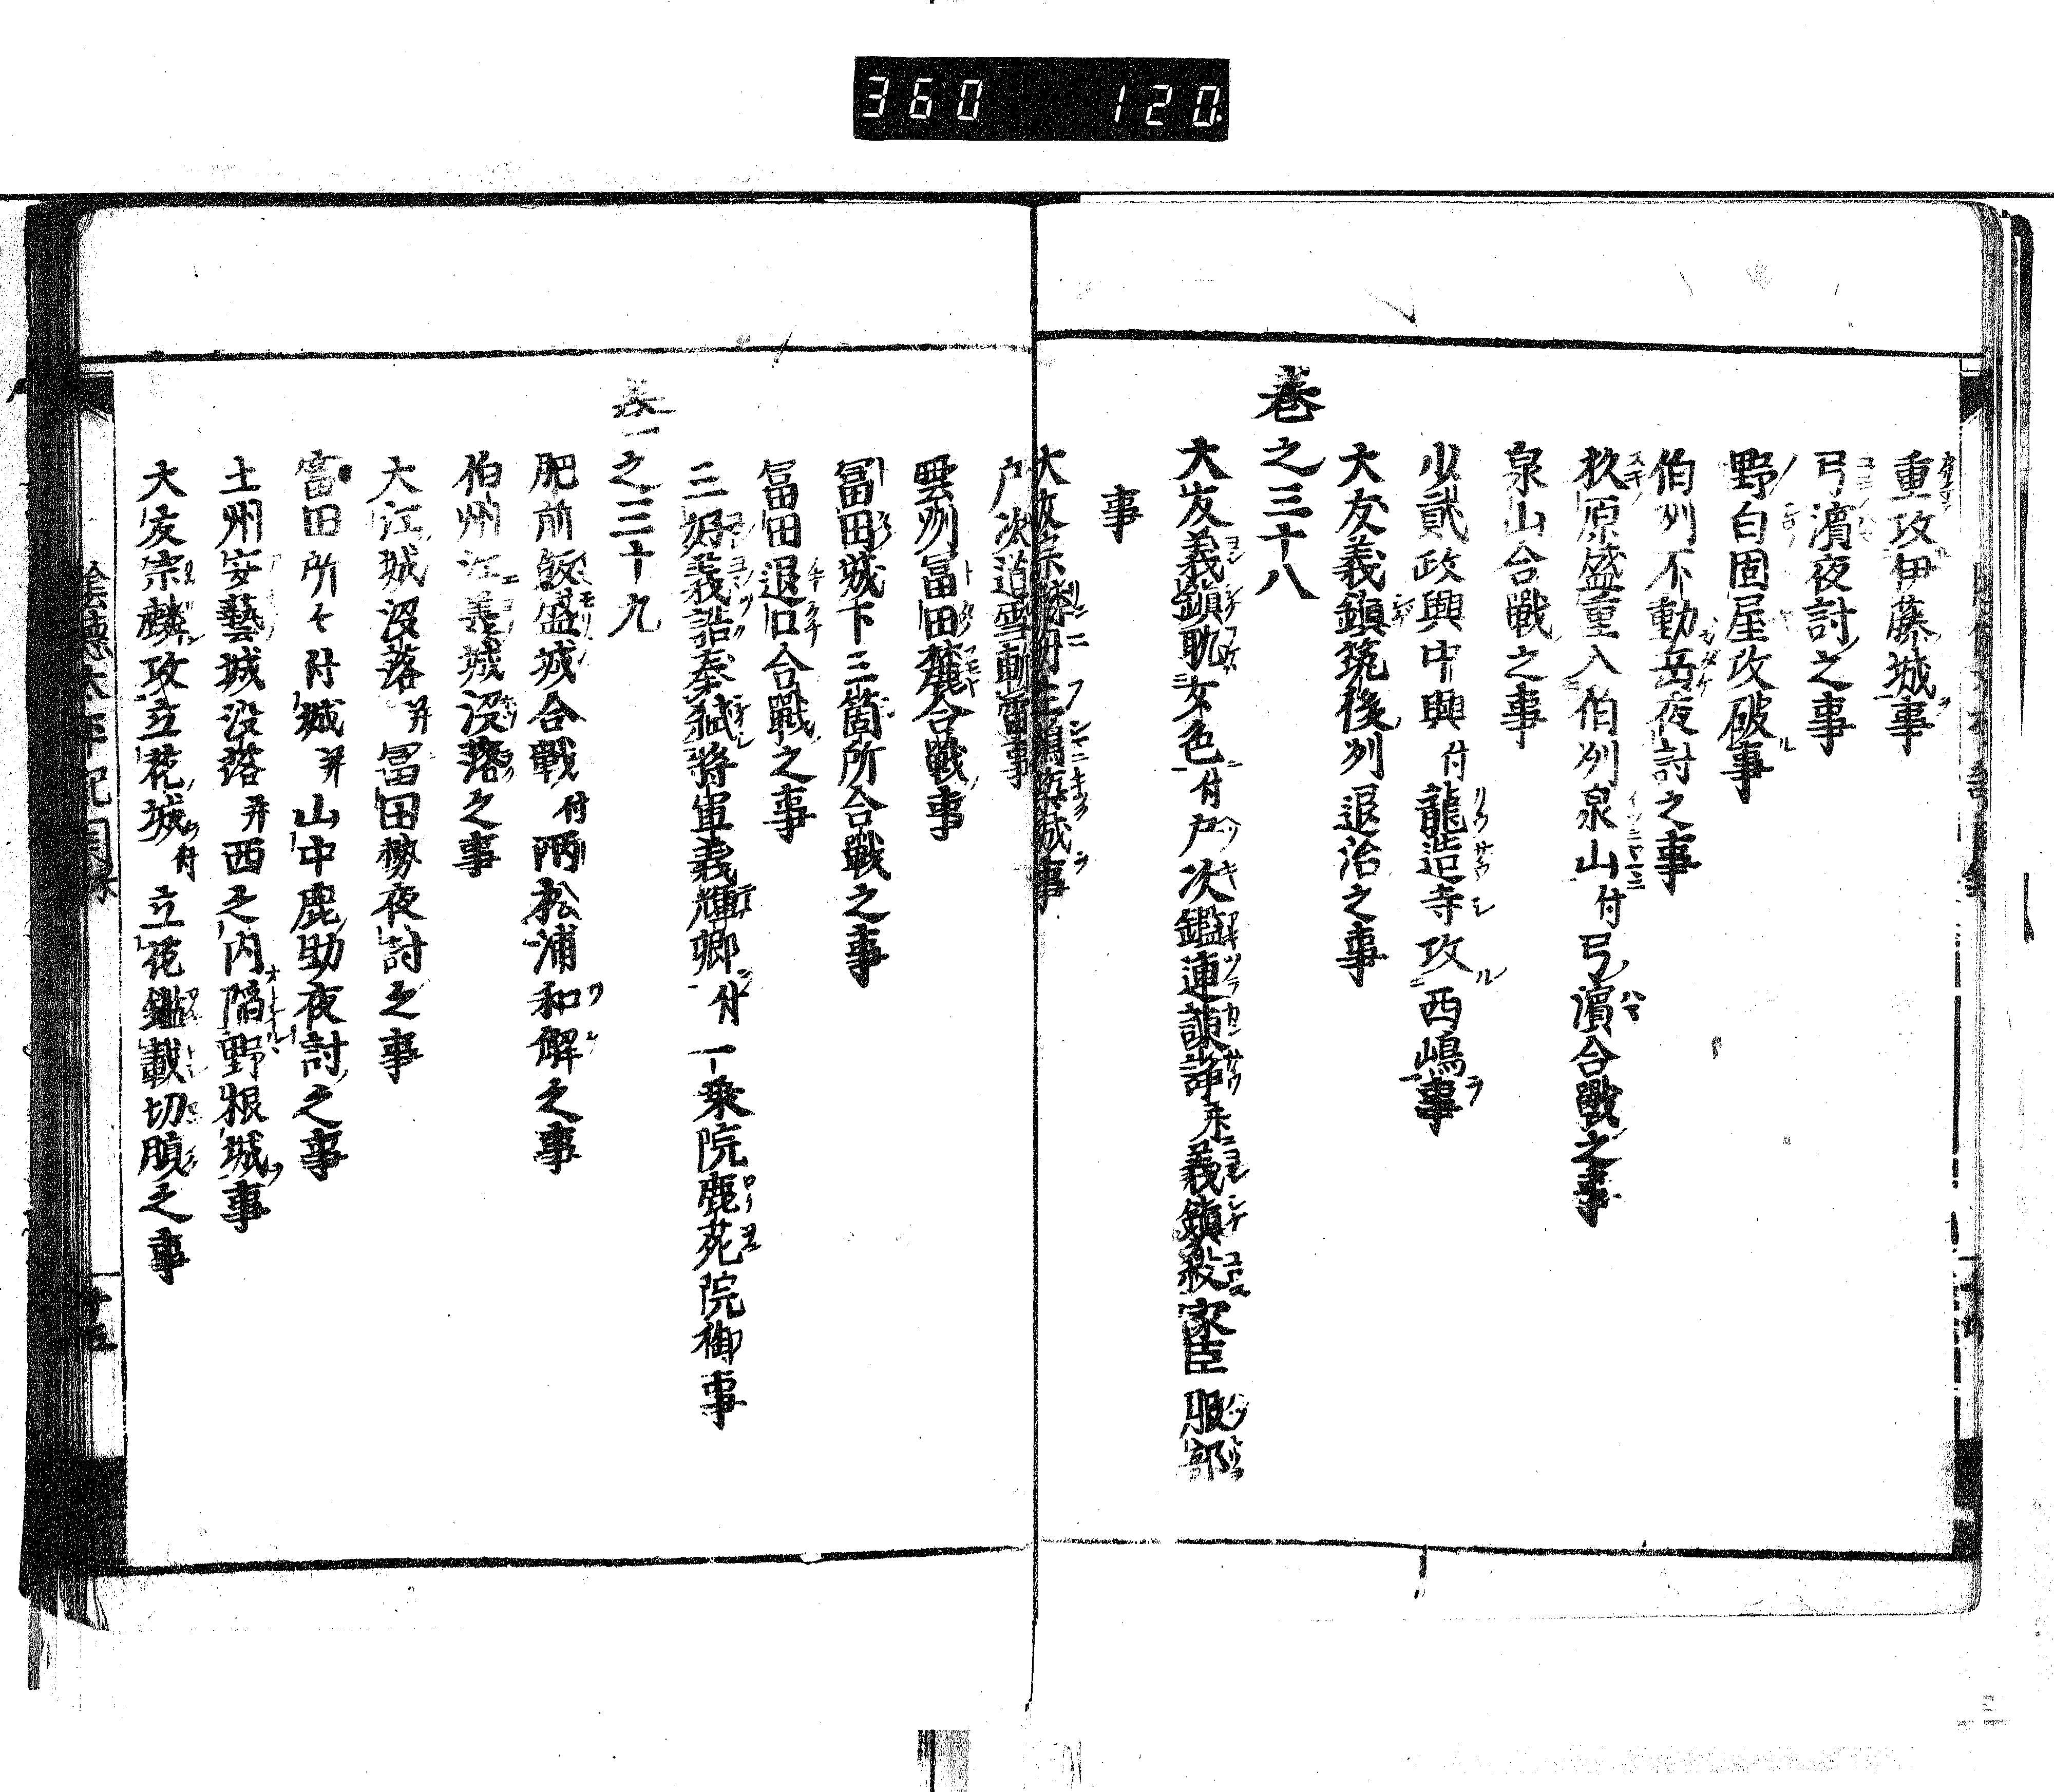 360 120
重攻伊藤城事
弓濵夜討之事
野白固屋攻破事
伯州不動岳夜討之事
杦原盛重入伯州泉山付弓濵合戰之事
泉山合戰之事
少貳政興中興付龍造寺攻西嶋事
大友義鎮筑後列退治之事
巻之三十八
大友義鎮耽女色付戸次鑑連諌諍 義鎮殺家臣服部
事
大友宗麟
戸次道雪斬雷事
雲州冨田麓合戰事
冨田城下三箇所合戰之事
冨田退口合戰之事
三好義 奏弑將軍義輝卿付一乗院鹿苑院御事
巻之三十九
肥前飯盛城合戰付兩松浦和解之事
伯州江美城没落之事
大江城没落并冨田勢夜討之事
富田所々付城并山中鹿助夜討之事
土州安藝城没落并西之内陷野根城事
大友宗麟攻立花城付立花鑑載切腹之事
陰德太平記目録
十五